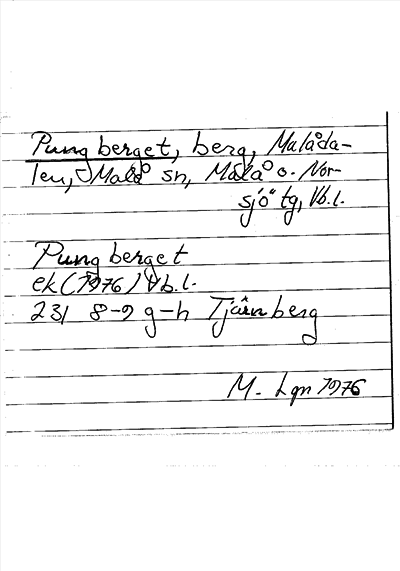 Pungberget, berg, Malåda-
len, Malå sn, Malå o. Nor-
sjö tg, Vb.l.
Pungberget
ek (1976) Vb.l.
231 8-9 g-h Tjärnberg
M. Lgn 1976